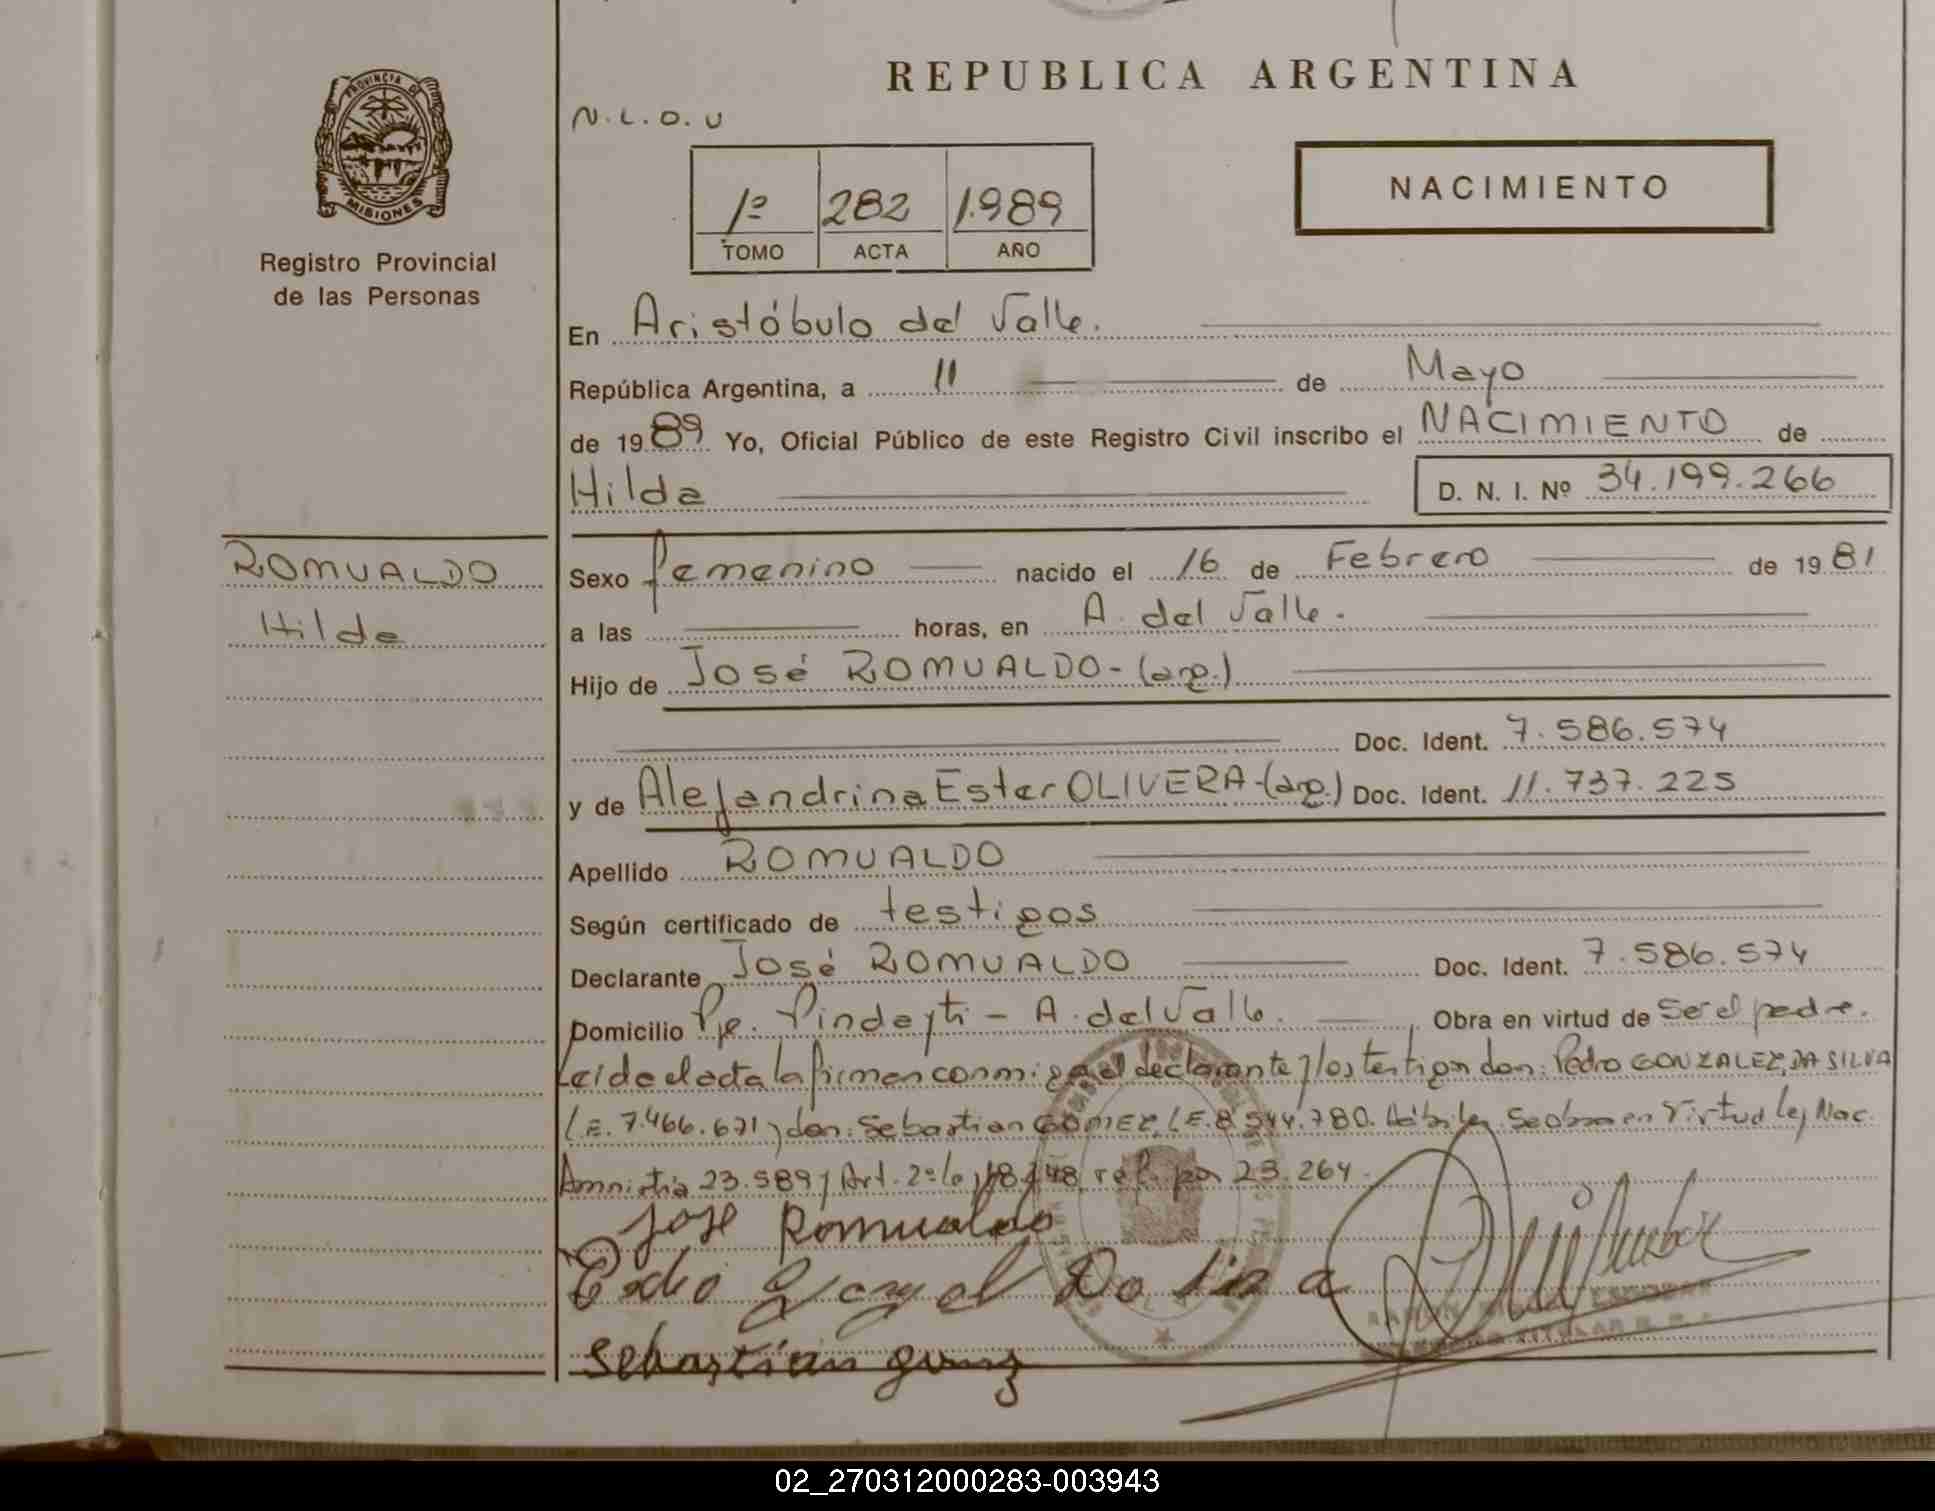 REPUBLICA ARGENTINA
N.L.O.U
PROVINCIA DE
MISIONES
Registro Provincial
de las Personas
1º 282 1.989
TOMO ACTA AÑO
NACIMIENTO
En Aristóbulo del Valle.
República Argentina, a 11 de Mayo
de 1989 Yo, Oficial Público de este Registro Civil inscribo el NACIMIENTO de
Hilda D. N. I. Nº 34.199.266
ROMUALDO
Hilda
Sexo femenino nacido el 16 de Febrero de 1981
a las horas, en A. del Valle.
Hijo de José ROMUALDO-(arg.)
Doc. Ident. 7.586.574
y de Alejandrina Ester OLIVERA-(arg.) Doc. Ident. 11.737.225
Apellido ROMUALDO
Según certificado de testigos
Declarante José ROMUALDO Doc. Ident. 7.586.574
Domicilio Pje. Pindayti - A. del Valle. Obra en virtud de ser el padre.
Leida el acta la firman conmigo el declarante y los testigos don: Pedro GONZALEZ DA SILVA
L.E. 7.466.671 y don: Sebastian GOMEZ L.E. 8.544.780. Hábiles. Se obra en Virtud Ley Nac.
Amnistia 23.589 y Art. 2º Ley 18.248 ref. por 23.264.
Jose Romualdo
Pedro Da Silva
Sebastian
ESCOBAR
TITULAR
02_270312000283-003943